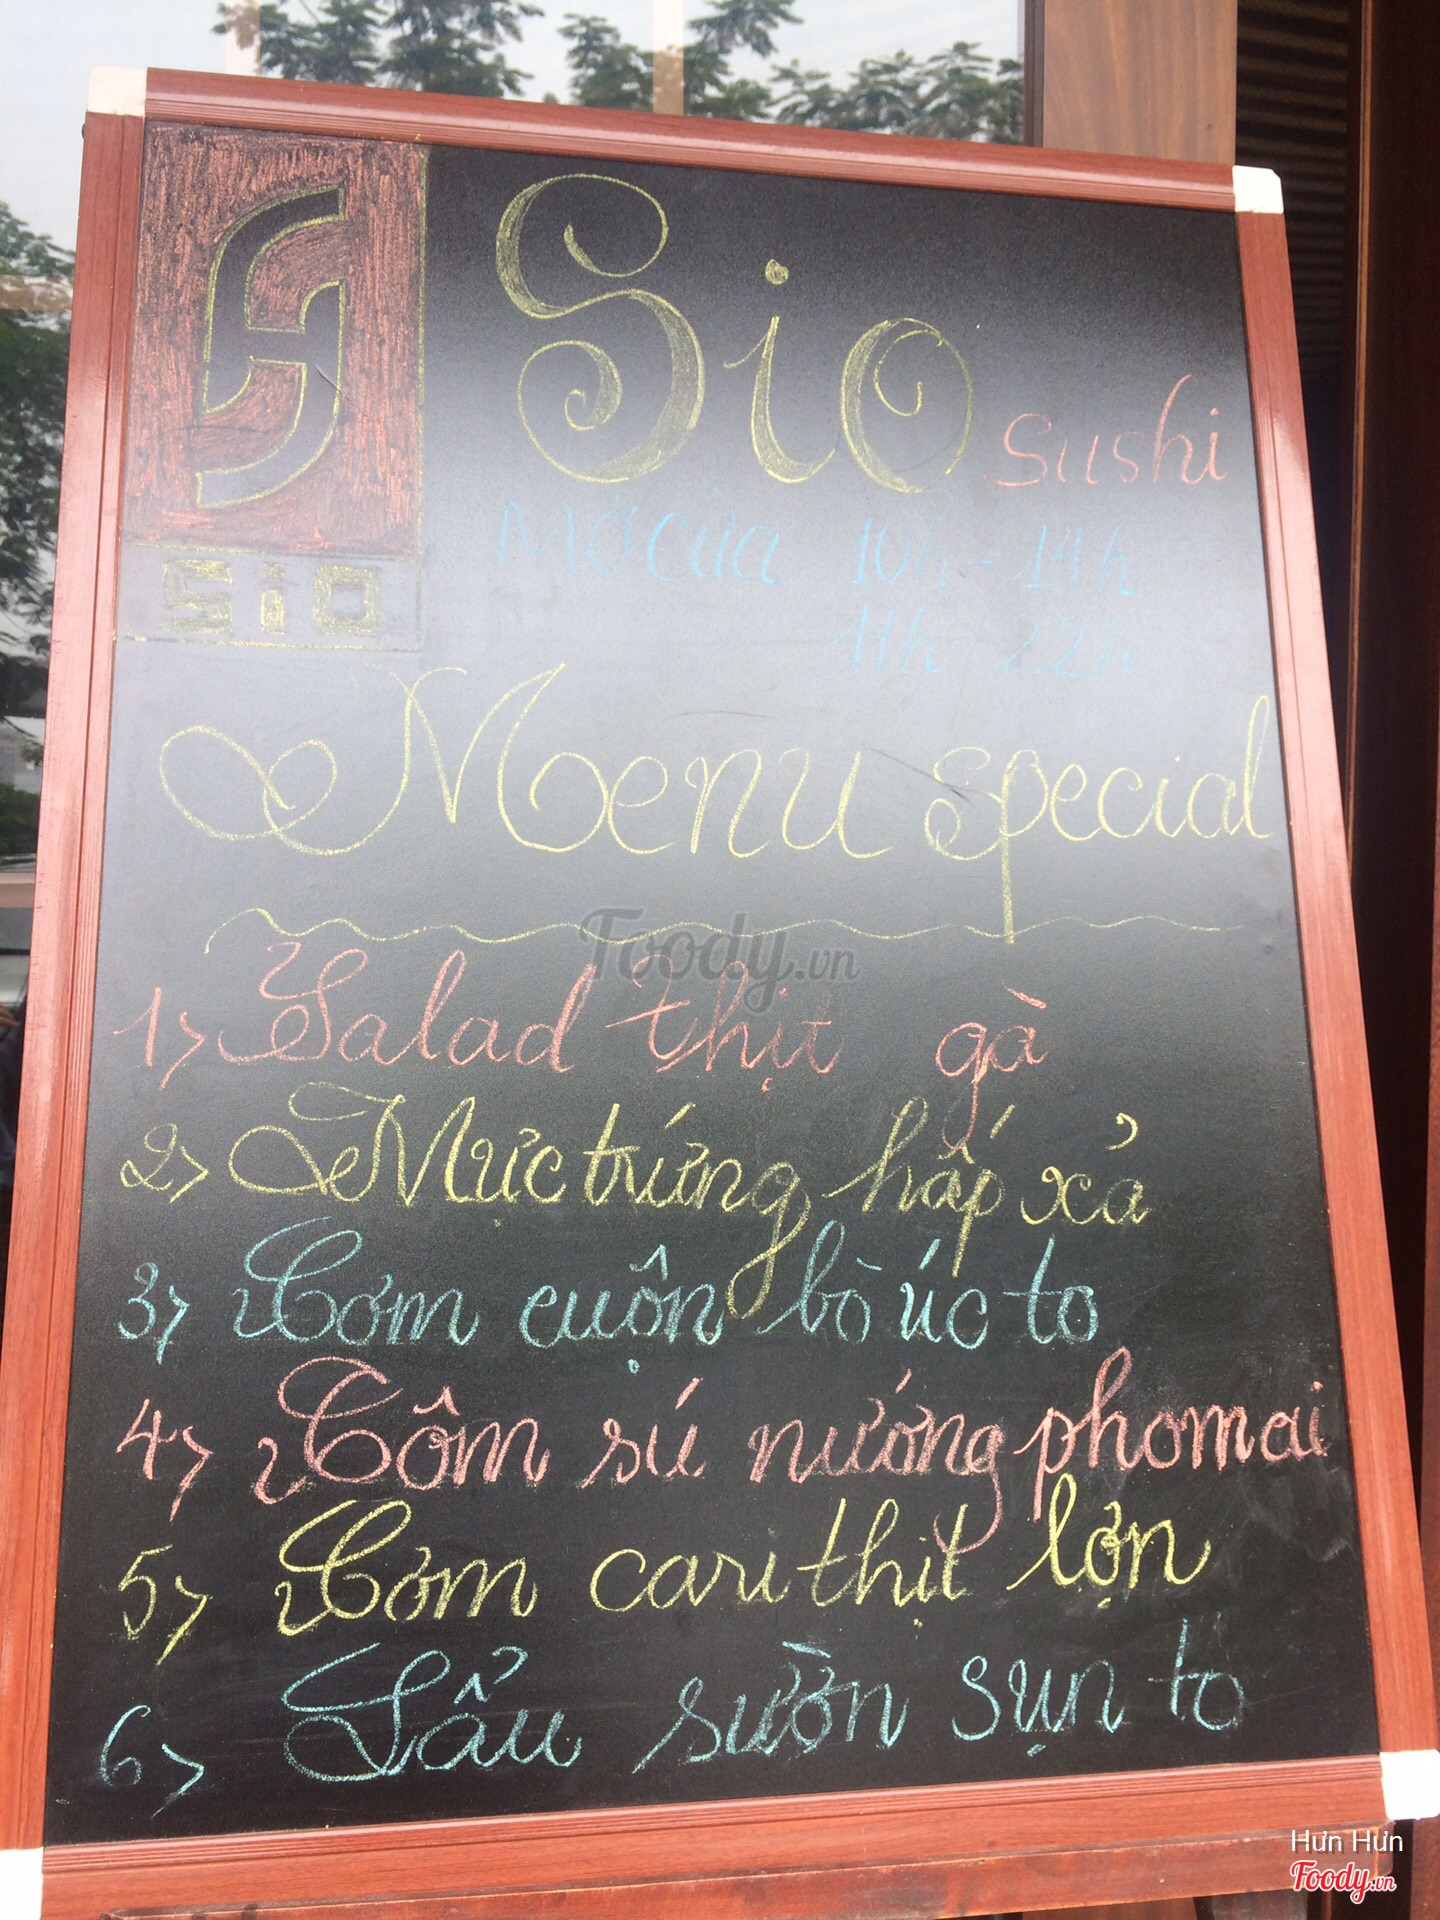 Sio sushi
SiO
Mở cửa : 10h - 14h
11h - 22h
Menu special
Foody.vn
1> Salad thịt gà
2> Mực trứng hấp xả
3> Cơm cuộn bò úc to
4> Tôm sú nướng phomai
5> Cơm cari thịt lợn
6> Lẩu sườn sụn to
Hưn Hưn
Foody.vn